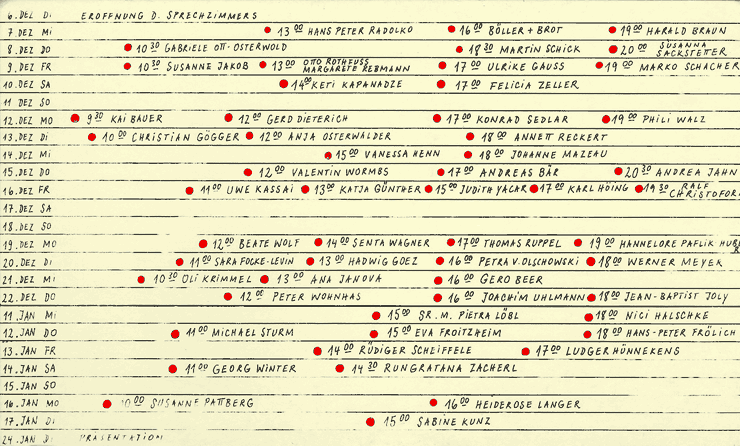 6. DEZ DI ERÖFFNUNG D. SPRECHZIMMERS
7. DEZ MI 13 00 HANS PETER RADOLKO 16 00 BÖLLER + BROT 19 00 HARALD BRAUN
8. DEZ DO 10 30 GABRIELE OTT-OSTERWOLD 18 30 MARTIN SCHICK 20 00 SUSANNA SACKSTETTER
9. DEZ FR 10 30 SUSANNE JAKOB 13 00 OTTO ROTHFUSS MARGARETE REBMANN 17 00 ULRIKE GAUSS 19 00 MARKO SCHACHER
10. DEZ SA 14 00 KETI KAPANADZE 17 00 FELICIA ZELLER
11. DEZ SO
12. DEZ MO 9 30 KAI BAUER 12 00 GERD DIETERICH 17 00 KONRAD SEDLAR 19 00 PHILI WALZ
13. DEZ DI 10 00 CHRISTIAN GÖGGER 12 00 ANJA OSTERWALDER 18 00 ANNETT RECKERT
14. DEZ MI 15 00 VANESSA HENN 18 00 JOHANNE MAZEAU
15. DEZ DO 12 00 VALENTIN WORMBS 17 00 ANDREAS BÄR 20 30 ANDREA JAHN
16. DEZ FR 11 00 UWE KASSAI 13 00 KATJA GÜNTHER 15 00 JUDITH YACAR 17 00 KARL HÖING 19 30 RALF CHRISTOFOR
17. DEZ SA
18. DEZ SO
19. DEZ MO 12 00 BEATE WOLF 14 00 SENTA WAGNER 17 00 THOMAS RUPPEL 19 00 HANNELORE PAFLIK HUB
20. DEZ DI 11 00 SARA FOCKE-LEVIN 13 00 HADWIG GOEZ 16 00 PETRA V. OLSCHOWSKI 18 00 WERNER MEYER
21. DEZ MI 10 30 OLI KRIMMEL 13 00 ANA JANOVA 16 00 GERO BEER
22. DEZ DO 12 00 PETER WOHNHAS 16 00 JOACHIM UHLMANN 18 00 JEAN-BAPTIST JOLY
11. JAN MI 15 00 SR. M. PIETRA LÖBL 18 00 NICI HALSCHKE
12. JAN DO 11 00 MICHAEL STURM 15 00 EVA FROITZHEIM 18 00 HANS-PETER FRÖLICH
13. JAN FR 14 00 RÜDIGER SCHEIFFELE 17 00 LUDGER HÜNNEKENS
14. JAN SA 11 00 GEORG WINTER 14 30 RUNGRATANA ZACHERL
15. JAN SO
16. JAN MO 10 00 SUSANNE PATTBERG 16 00 HEIDEROSE LANGER
17. JAN DI 15 00 SABINE KUNZ
24. JAN DI PRÄSENTATION